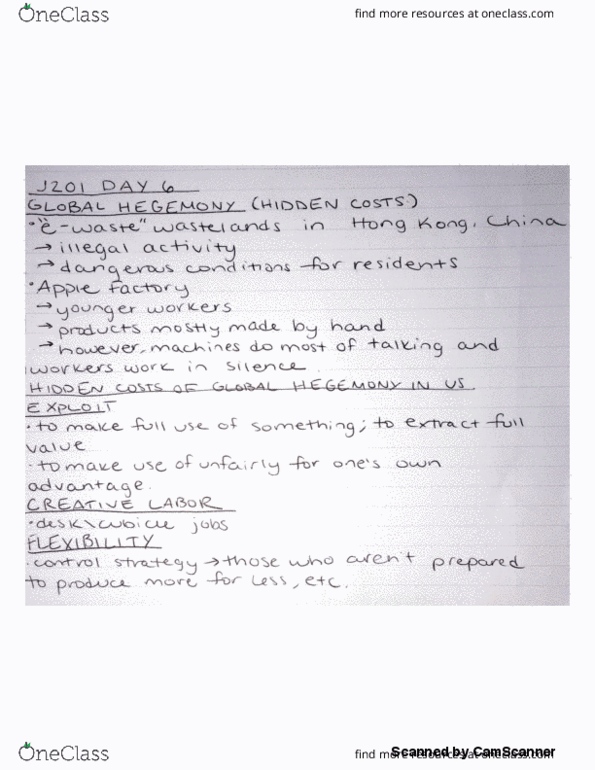 OneClass
find more resources at oneclass.com
J201 DAY 6
GLOBAL HEGEMONY (HIDDEN COSTS)
• "e-waste" wastelands in Hong Kong, China
→ illegal activity
→ dangerous conditions for residents
• Apple factory
→ younger workers
→ products mostly made by hand
→ however, machines do most of talking and
workers work in silence.
HIDDEN COSTS OF GLOBAL HEGEMONY IN US
EXPLOIT
• to make full use of something; to extract full
value
• to make use of unfairly for one's own
advantage.
CREATIVE LABOR
• desk\cubicle jobs
FLEXIBILITY
• control strategy → those who aren't prepared
to produce more for less, etc.
OneClass
find more resources at oneclass.com
Scanned by CamScanner